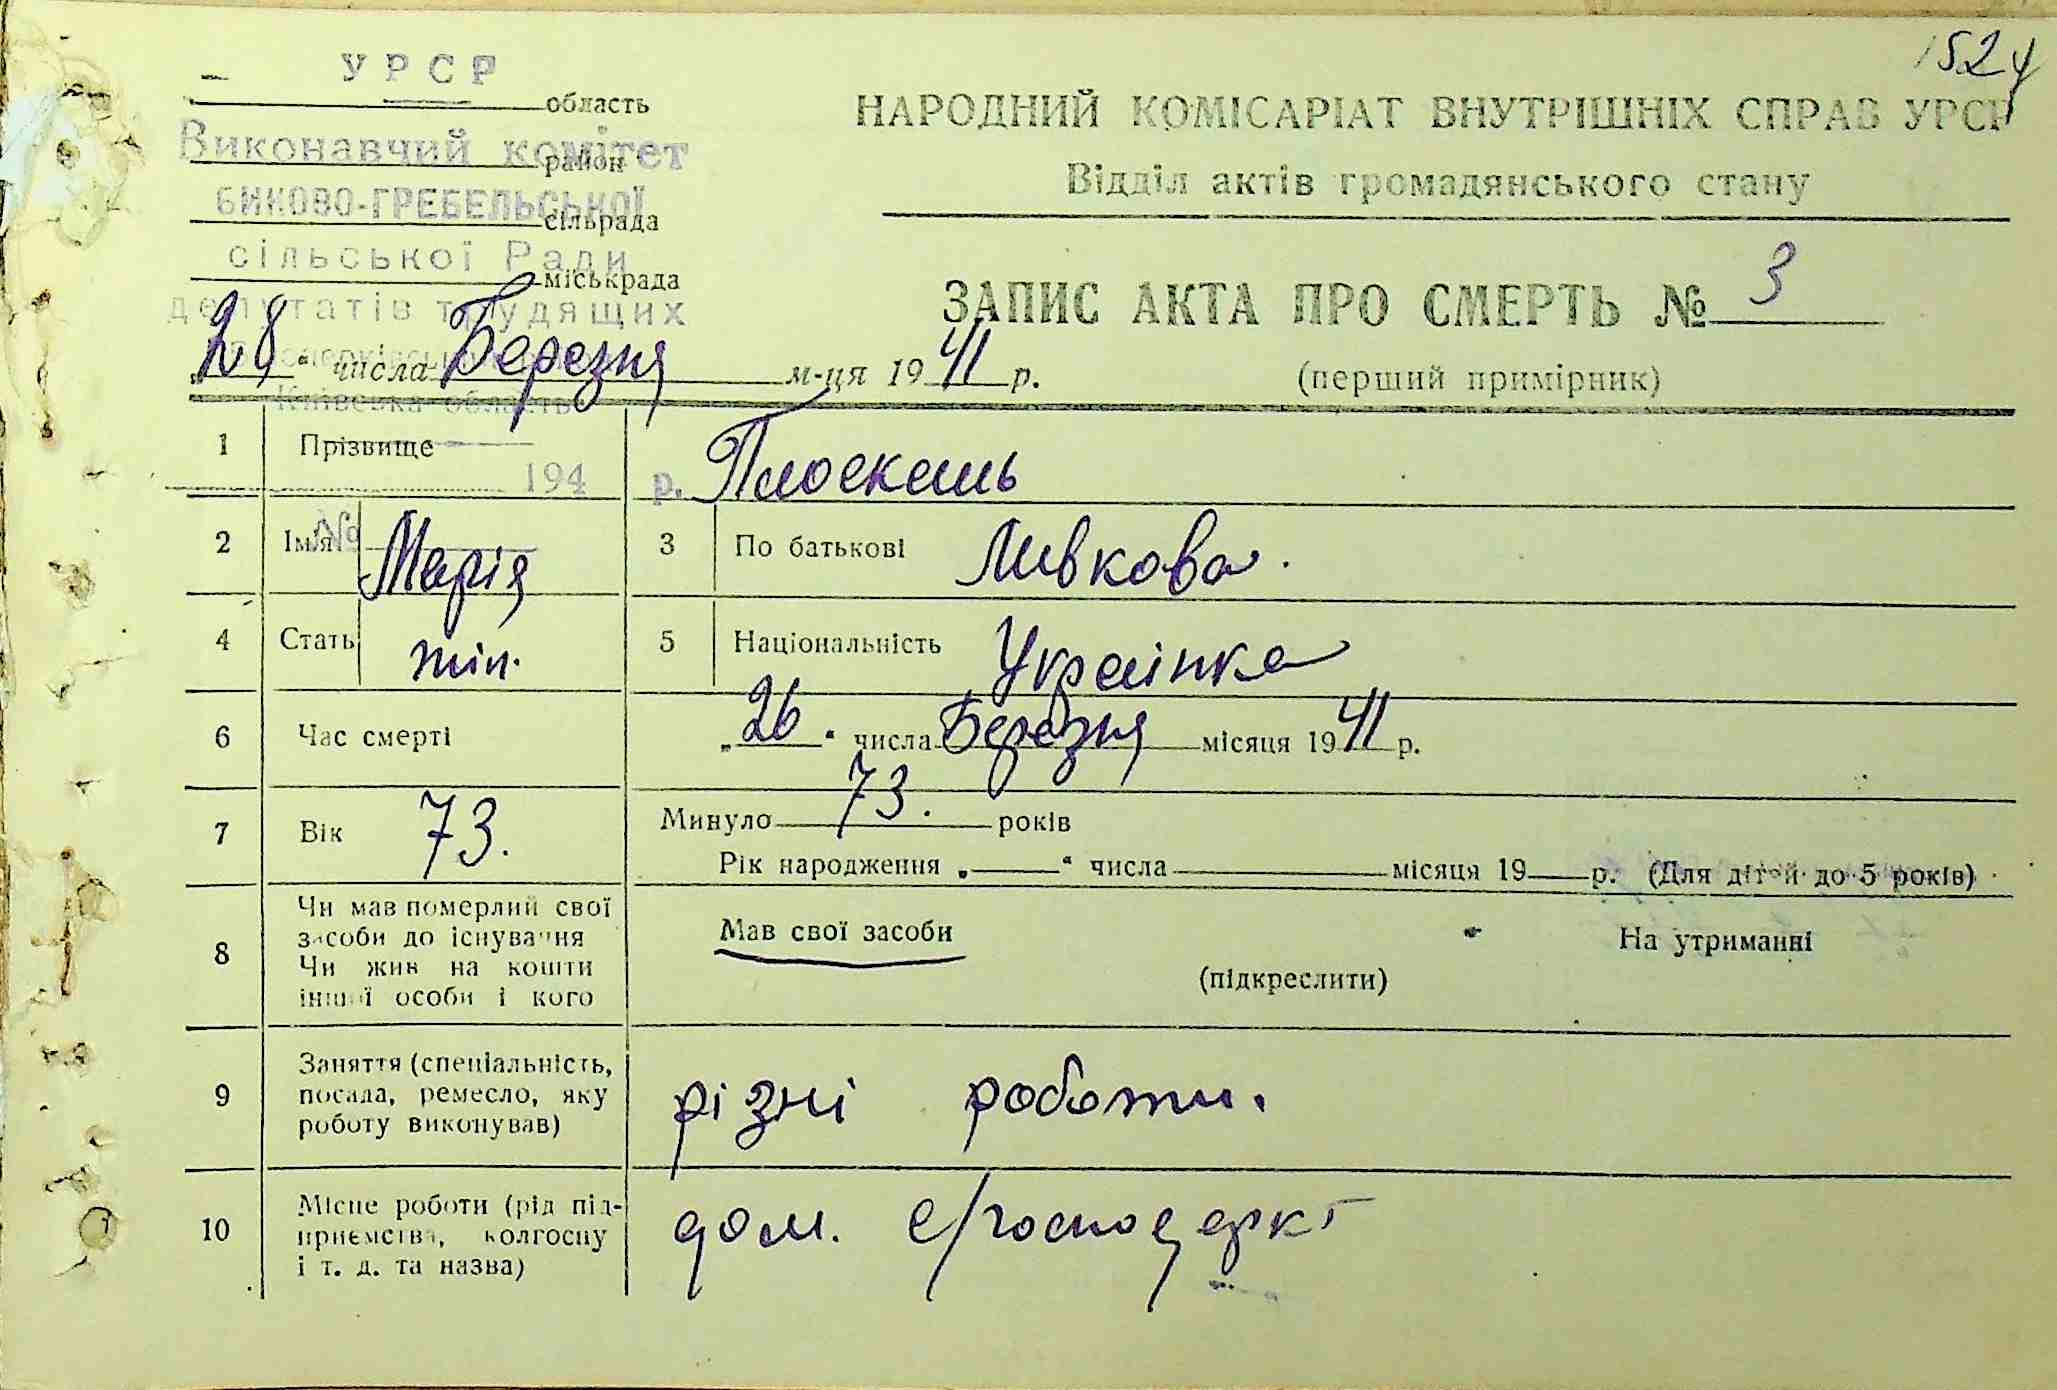 152
УРСР
область
НАРОДНИЙ КОМІСАРІАТ ВНУТРІШНІХ СПРАВ УРСР
Виконавчий комітет
район
Відділ актів громадянського стану
БИКОВО-ГРЕБЕЛЬСЬКОЇ
сільрада
сільської Ради
міськрада
ЗАПИС АКТА ПРО СМЕРТЬ № 3
депутатів трудящих
28 " числа Березня м-ця 1941 р.
(перший примірник)
Київська область
1 Прізвище
194 р.
2 Імя Марія 3 По батькові Ливкова.
№
4 Стать жін. 5 Національність Українка
6 Час смерті „26" числа Березня місяця 1941 р.
7 Вік 73. Минуло 73. років
Рік народження „ " числа місяця 19 р. (Для дітей до 5 років)
8 Чи мав померлий свої засоби до існування Чи жив на кошти іншої особи і кого
Мав свої засоби На утриманні
(підкреслити)
9 Заняття (спеціальність, посада, ремесло, яку роботу виконував)
різні роботи.
10 Місце роботи (рід підприємства, колгоспу і т. д. та назва)
дом. с/господаркі